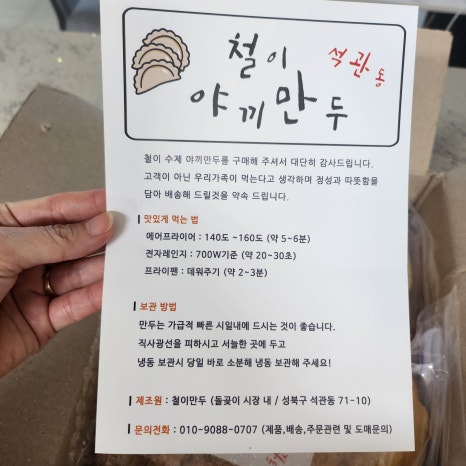 철이 석관동
야끼만두
철이 수제 야끼만두를 구매해 주셔서 대단히 감사드립니다.
고객이 아닌 우리가족이 먹는다고 생각하며 정성과 따뜻함을
담아 배송해 드릴것을 약속 드립니다.
맛있게 먹는 법
에어프라이어 : 140도 ~160도 (약 5~6분)
전자레인지 : 700W기준 (약 20~30초)
프라이팬 : 데워주기 (약 2~3분)
보관 방법
만두는 가급적 빠른 시일내에 드시는 것이 좋습니다.
직사광선을 피하시고 서늘한 곳에 두고
냉동 보관시 당일 바로 소분해 냉동 보관해 주세요!
제조원 : 철이만두 (돌곶이 시장 내 / 성북구 석관동 71-10)
문의전화 : 010-9088-0707 (제품,배송,주문관련 및 도매문의)